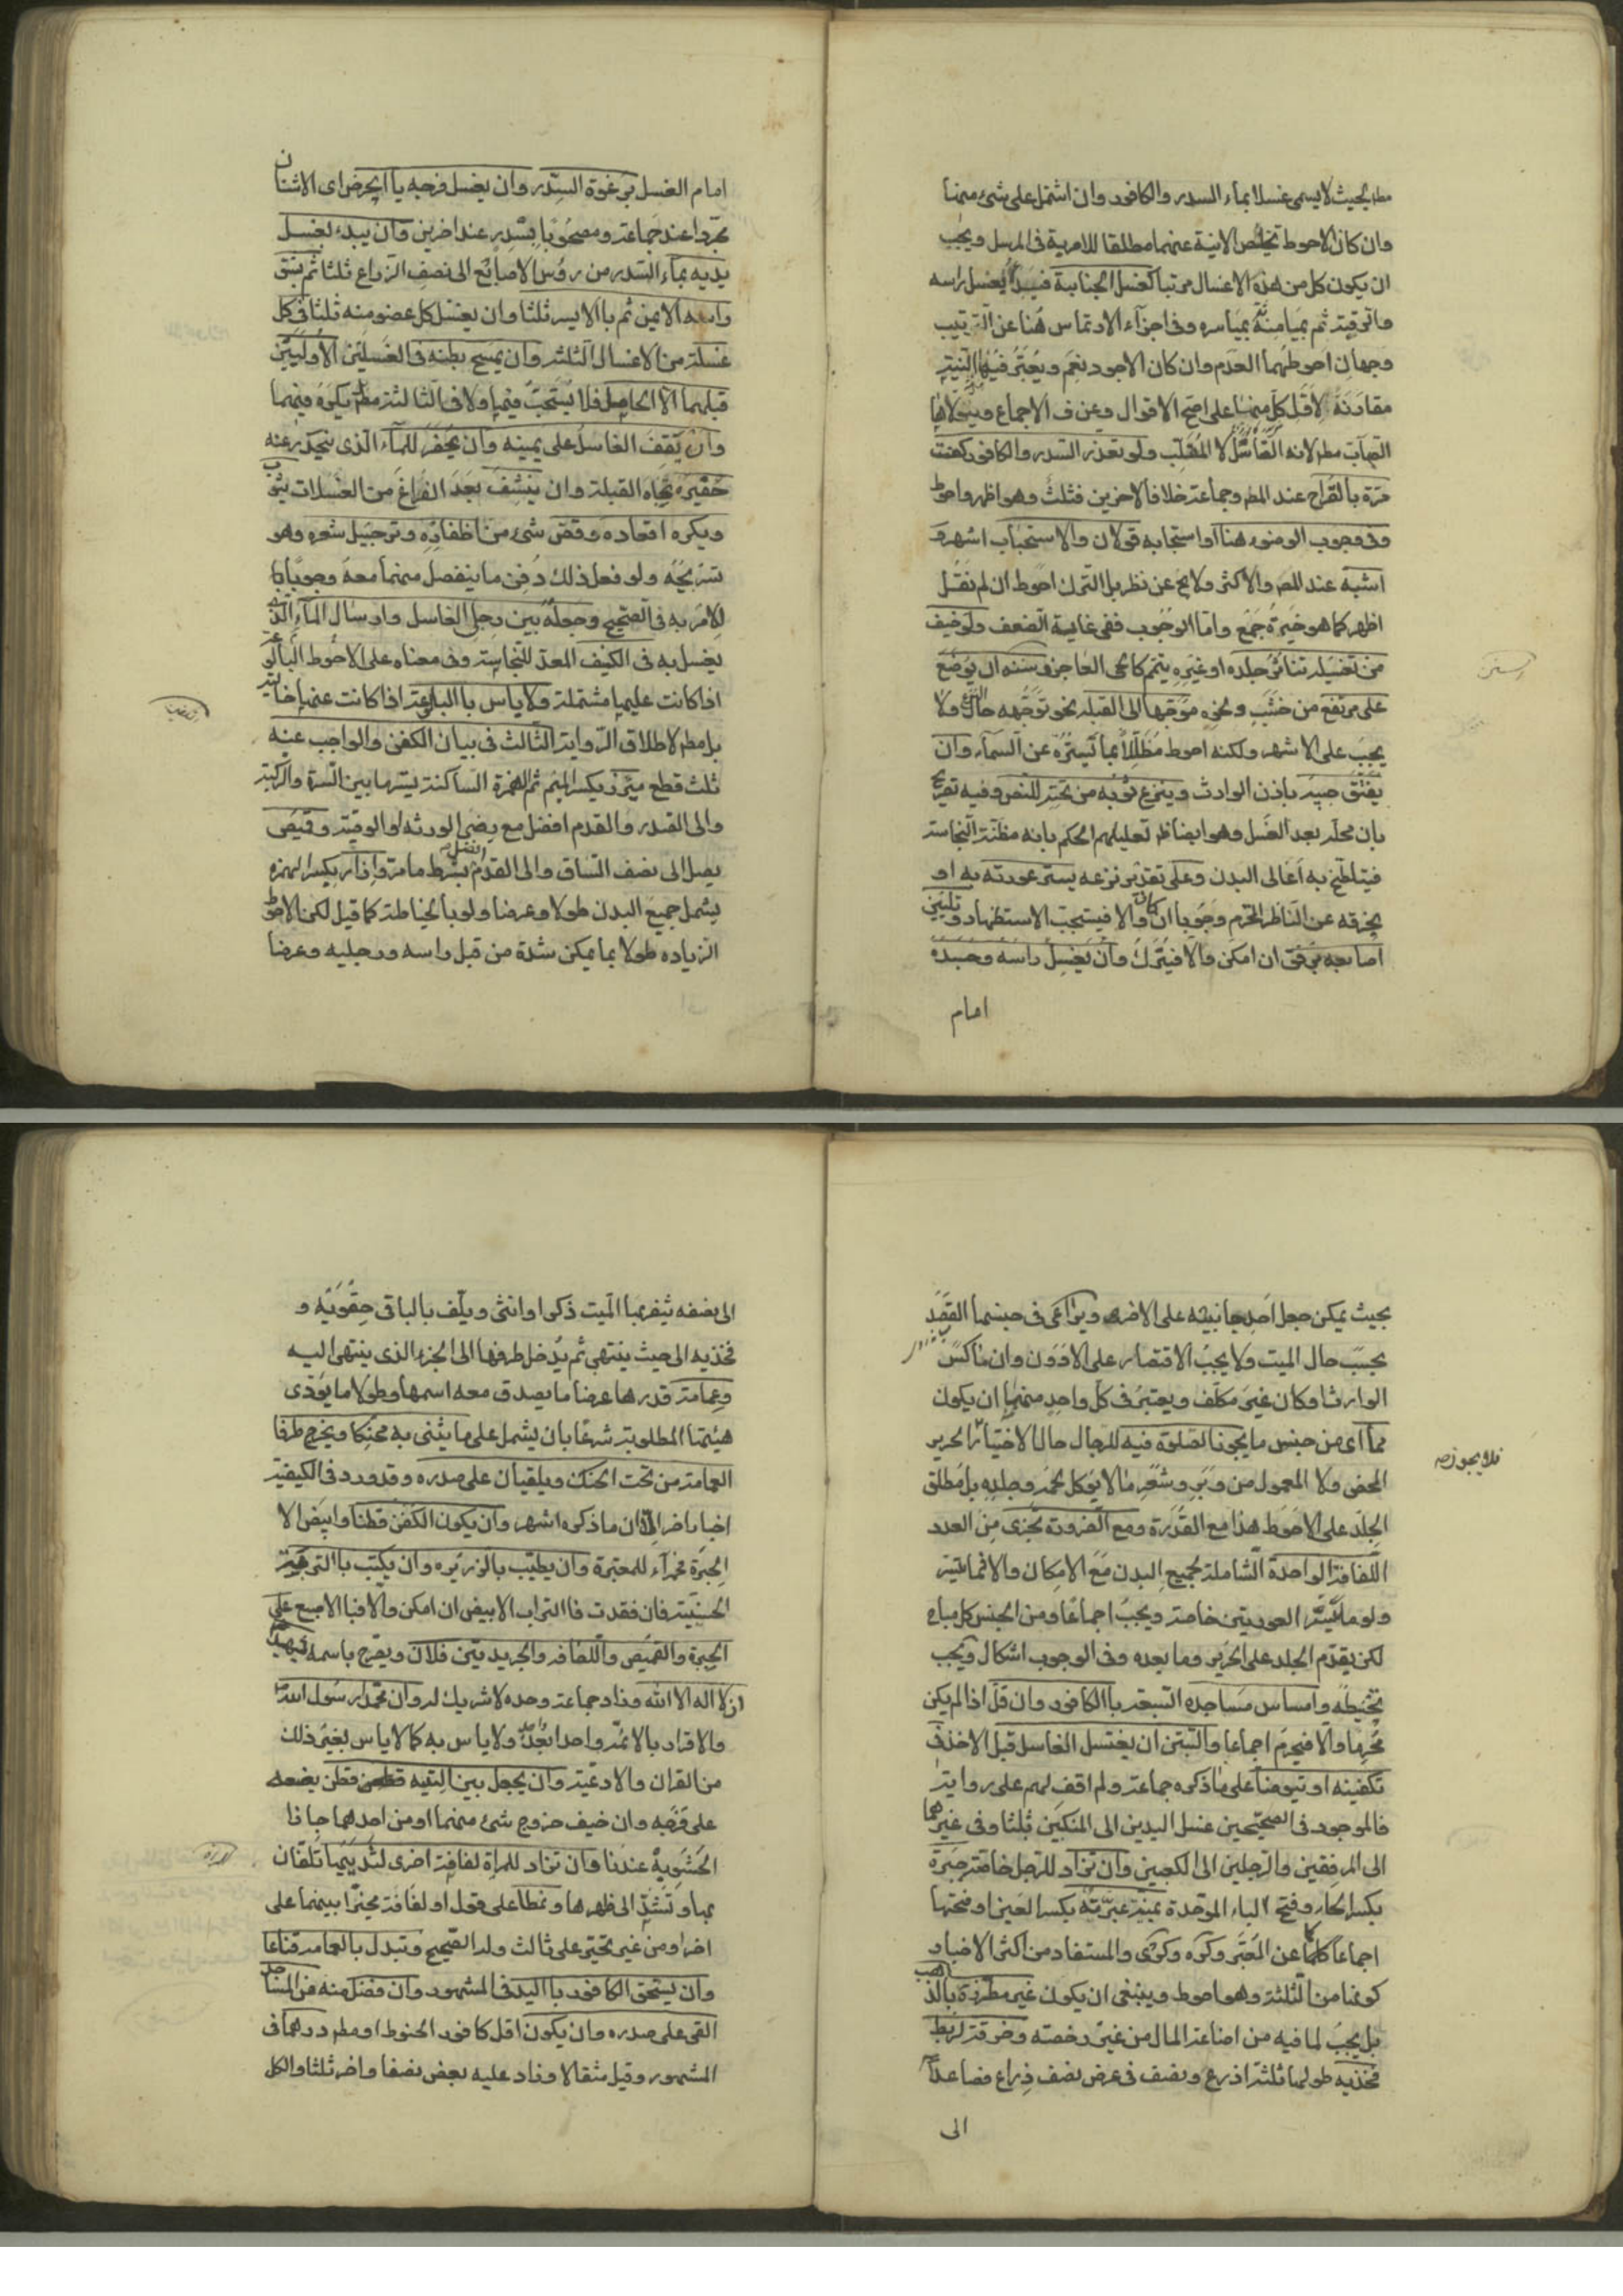 مطلقا بحيث لا يسمى غسلا بماء السدر والكافور وان اشتمل على شئ منهما
وان كان الاحوط تخليص الانية عنهما مطلقا للامر به فى المرسل ويجب
ان يكون كل من هذه الاغسال مرتبا كغسل الجنابة فيبدأ بغسل راسه
ورقبته ثم بميامنه ثم بمياسره وفى اجزاء الارتماس هنا عن الترتيب
وجهان احوطهما العدم وان كان الاجود نعم ويعتبر فيها النية
مقارنة لاقل كل منها على اصح الاقوال وعن ف الاجماع ويتولاها
الصاب مطر لانه الغاسل لا المقلب ولو تعذر السدر والكافور كفت
مرة بالقراح عند المصر وجماعة خلافا لاخرين فثلث وهو اظهر واحوط
وفى وجوب الوضوء هنا او استحبابه قولان والاستحباب اشهر و
اشبه عند المصر والاكثر ولا يخ عن نظر بل الترك احوط ان لم نقل
اظهر كما هو خيرة جمع واما الوجوب ففى غاية الضعف ولو خيف
من تغسيله تناثر جلده او غيره يتيمم كالحى العاجز وسننه ان يوضع
على مرتفع من خشب ونحوه موجها الى القبله نحو توجهه حال النزع ولا
يجب على الاشهر ولكنه احوط مظللا بما يستره عن السماء وان
يفتق جيبه باذن الوارث وينزع ثوبه من تحته للنص وفيه تصريح
بان محله بعد الغسل وهو ايضا ظ تعليلهم الحكم بانه مظنة النجاسة
فيتلطخ به اعالى البدن وعلى تقدير نزعه يستر عورته به او
بخرقه عن الناظر المحترم وجوبا ان كان والا فيستحب الاستظهار و تليين
اصابعه برفق ان امكن والا فيترك وان يغسل راسه وجسده
امام
امام الغسل برغوة السدر وان يغسل فرجه باالحرض اى الاشنان
مجردا عند جماعة ومصحوبا بسدر عند اخرين وان يبدء بغسل
يديه بماء السدر من رؤس الاصابع الى نصف الذراع ثلثا ثم بشق
راسه الايمن ثم باالايسر ثلثا وان يغسل كل عضو منه ثلثا فى كل
غسلة من الاغسال الثلثه وان يمسح بطنه فى الغسلتين الاوليين
قبلهما الا الحامل فلا يستحب فيها ولا فى الثالثة مطر بل يكره فيهما
وان يقف الغاسل على يمينه وان يحفر للماء الذى ينحدر عنه
حفيرة تجاه القبلة وان ينشف بعد الفراغ من الغسلات بثوب
ويكره اقعاده وقص شئ من اظفاره وترجيل شعره وهو
تسريحه ولو فعل ذلك دفن ما ينفصل منهما معه وجوبا
للامر به فى الصحيح وجعله بين رجلى الغاسل وارسال الماء الذى
يغسل به فى الكنيف المعد للنجاسة وفى معناه على الاحوط البالوعة
اذا كانت عليها مشتملة ولا باس باالبالوعة اذا كانت عنها خالية
بل مطر لاطلاق الرواية الثالث فى بيان الكفن والواجب عنه
ثلث قطع ميزر بكسر الميم ثم الهمزة الساكنة يستر ما بين السرة والركبة
والى الصدر والقدم افضل مع رضى الورثه او الوصية وقميص
يصل الى نصف الساق والى القدم افضل بشرط ما مر وازار بكسر الهمزه
يشمل جميع البدن طولا وعرضا ولو بالخياطة كما قيل لكن الاحوط
الزياده طولا بما يمكن شدة من قبل راسه ورجليه وعرضا
بحيث يمكن جعل احد جانبيه على الاخر ويراعى فى جنسها القصد
بحسب حال الميت ولا يجب الاقتصار على الادون وان ماكس
الوارث او كان غير مكلف ويعتبر فى كل واحد منها ان يكون
مما اى من جنس ما يجوز الصلوة فيه للرجال حال الاختيار الحرير
فلا يجوز صح
المحض ولا المعمول من وبر وشعر مالا يؤكل لحمه وجلده بل مطلق
الجلد على الاحوط هذا مع القدرة ومع الضرورة تجزى من العدد
اللفافة الواحدة الشاملة لجميع البدن مع الامكان والا فما تيسر
ولو ما يستر العورتين خاصة ويجب اجماعا ومن الجنس كل مباح
لكن يقدم الجلد على الحرير وما بعده وفى الوجوب اشكال ويجب
تحنيطه وامساس مساجده السبعة باالكافور وان قل اذا لم يكن
محرما والا فيحرم اجماعا والسنن ان يغتسل الغاسل قبل الاخذ فى
تكفينه او يتوضأ على ما ذكره جماعة ولم اقف لهم على رواية
فالموجود فى الصحيحين غسل اليدين الى المنكبين ثلثا وفى غيرهما
الى المرفقين والرجلين الى الكعبين وان تزاد للرجل خاصة حبرة
بكسر الحاء وفتح الباء الموحدة يمنية عبرية بكسر العين او فتحها
اجماعا كما عن المعتبر وكره وكرى والمستفاد من اكثر الاخبار
كونها من الثلثة وهو احوط وينبغى ان يكون غير مطرزة بالذهب
بل يجب لما فيه من اضاعة المال من غير رخصته وخرقة لربط
فخذيه طولها ثلثة اذرع ونصف فى عرض نصف ذراع فصاعدا
الى
الى نصفه يثفر بها الميت ذكرا او انثى ويلف بالباقى حقويه و
فخذيه الى حيث ينتهى ثم يدخل طرفها الى الجزء الذى ينتهى اليه
وعمامة قدرها عرضا ما يصدق معه اسمها وطولا ما يؤدى
هيئتها المطلوبة شرعا بان يشمل على ما يثنى به محنكا ويخرج طرفا
العمامة من تحت الحنك ويلقيان على صدره وقد ورد فى الكيفية
اخبار اخر الا ان ما ذكره اشهر وان يكون الكفن قطنا وابيض الا
الحبرة فحمراء للمعتبرة وان يطيب بالذريره وان يكتب باالتربة
الحسينية فان فقدت فاالتراب الابيض ان امكن والا فبا الاصبع على
الحبرة والقميص واللفافه والجريدتين فلان ويصرح باسمه يشهد
ان لا اله الا الله وزاد جماعة وحده لا شريك له وان محمدا رسول الله ص
والاقرار بالائمة واحدا بعد واحد ولا باس به كما لا باس بغير ذلك
من القران والادعية وان يجعل بين اليتيه قطن يضعه
على فرجه وان خيف خروج شئ منهما او من احدهما جاز
الحشو به عندنا وان تزاد للمراة لفافة اخرى لثدييها تلفان
بها وتشد الى ظهرها ونمطا على قول او لفافة مخيرا بينهما على
اخر ومن غير تخيير على ثالث وله الصحيح وتبدل بالعمامة قناعا
وان يسحق الكافور بااليد فى المشهور وان فضل منه عن المساجد
القى على صدره وان يكون اقل كافور الحنوط او مطر درهما فى
المشهور وقيل مثقالا وزاد عليه بعض نصفا واخر ثلثا والكل